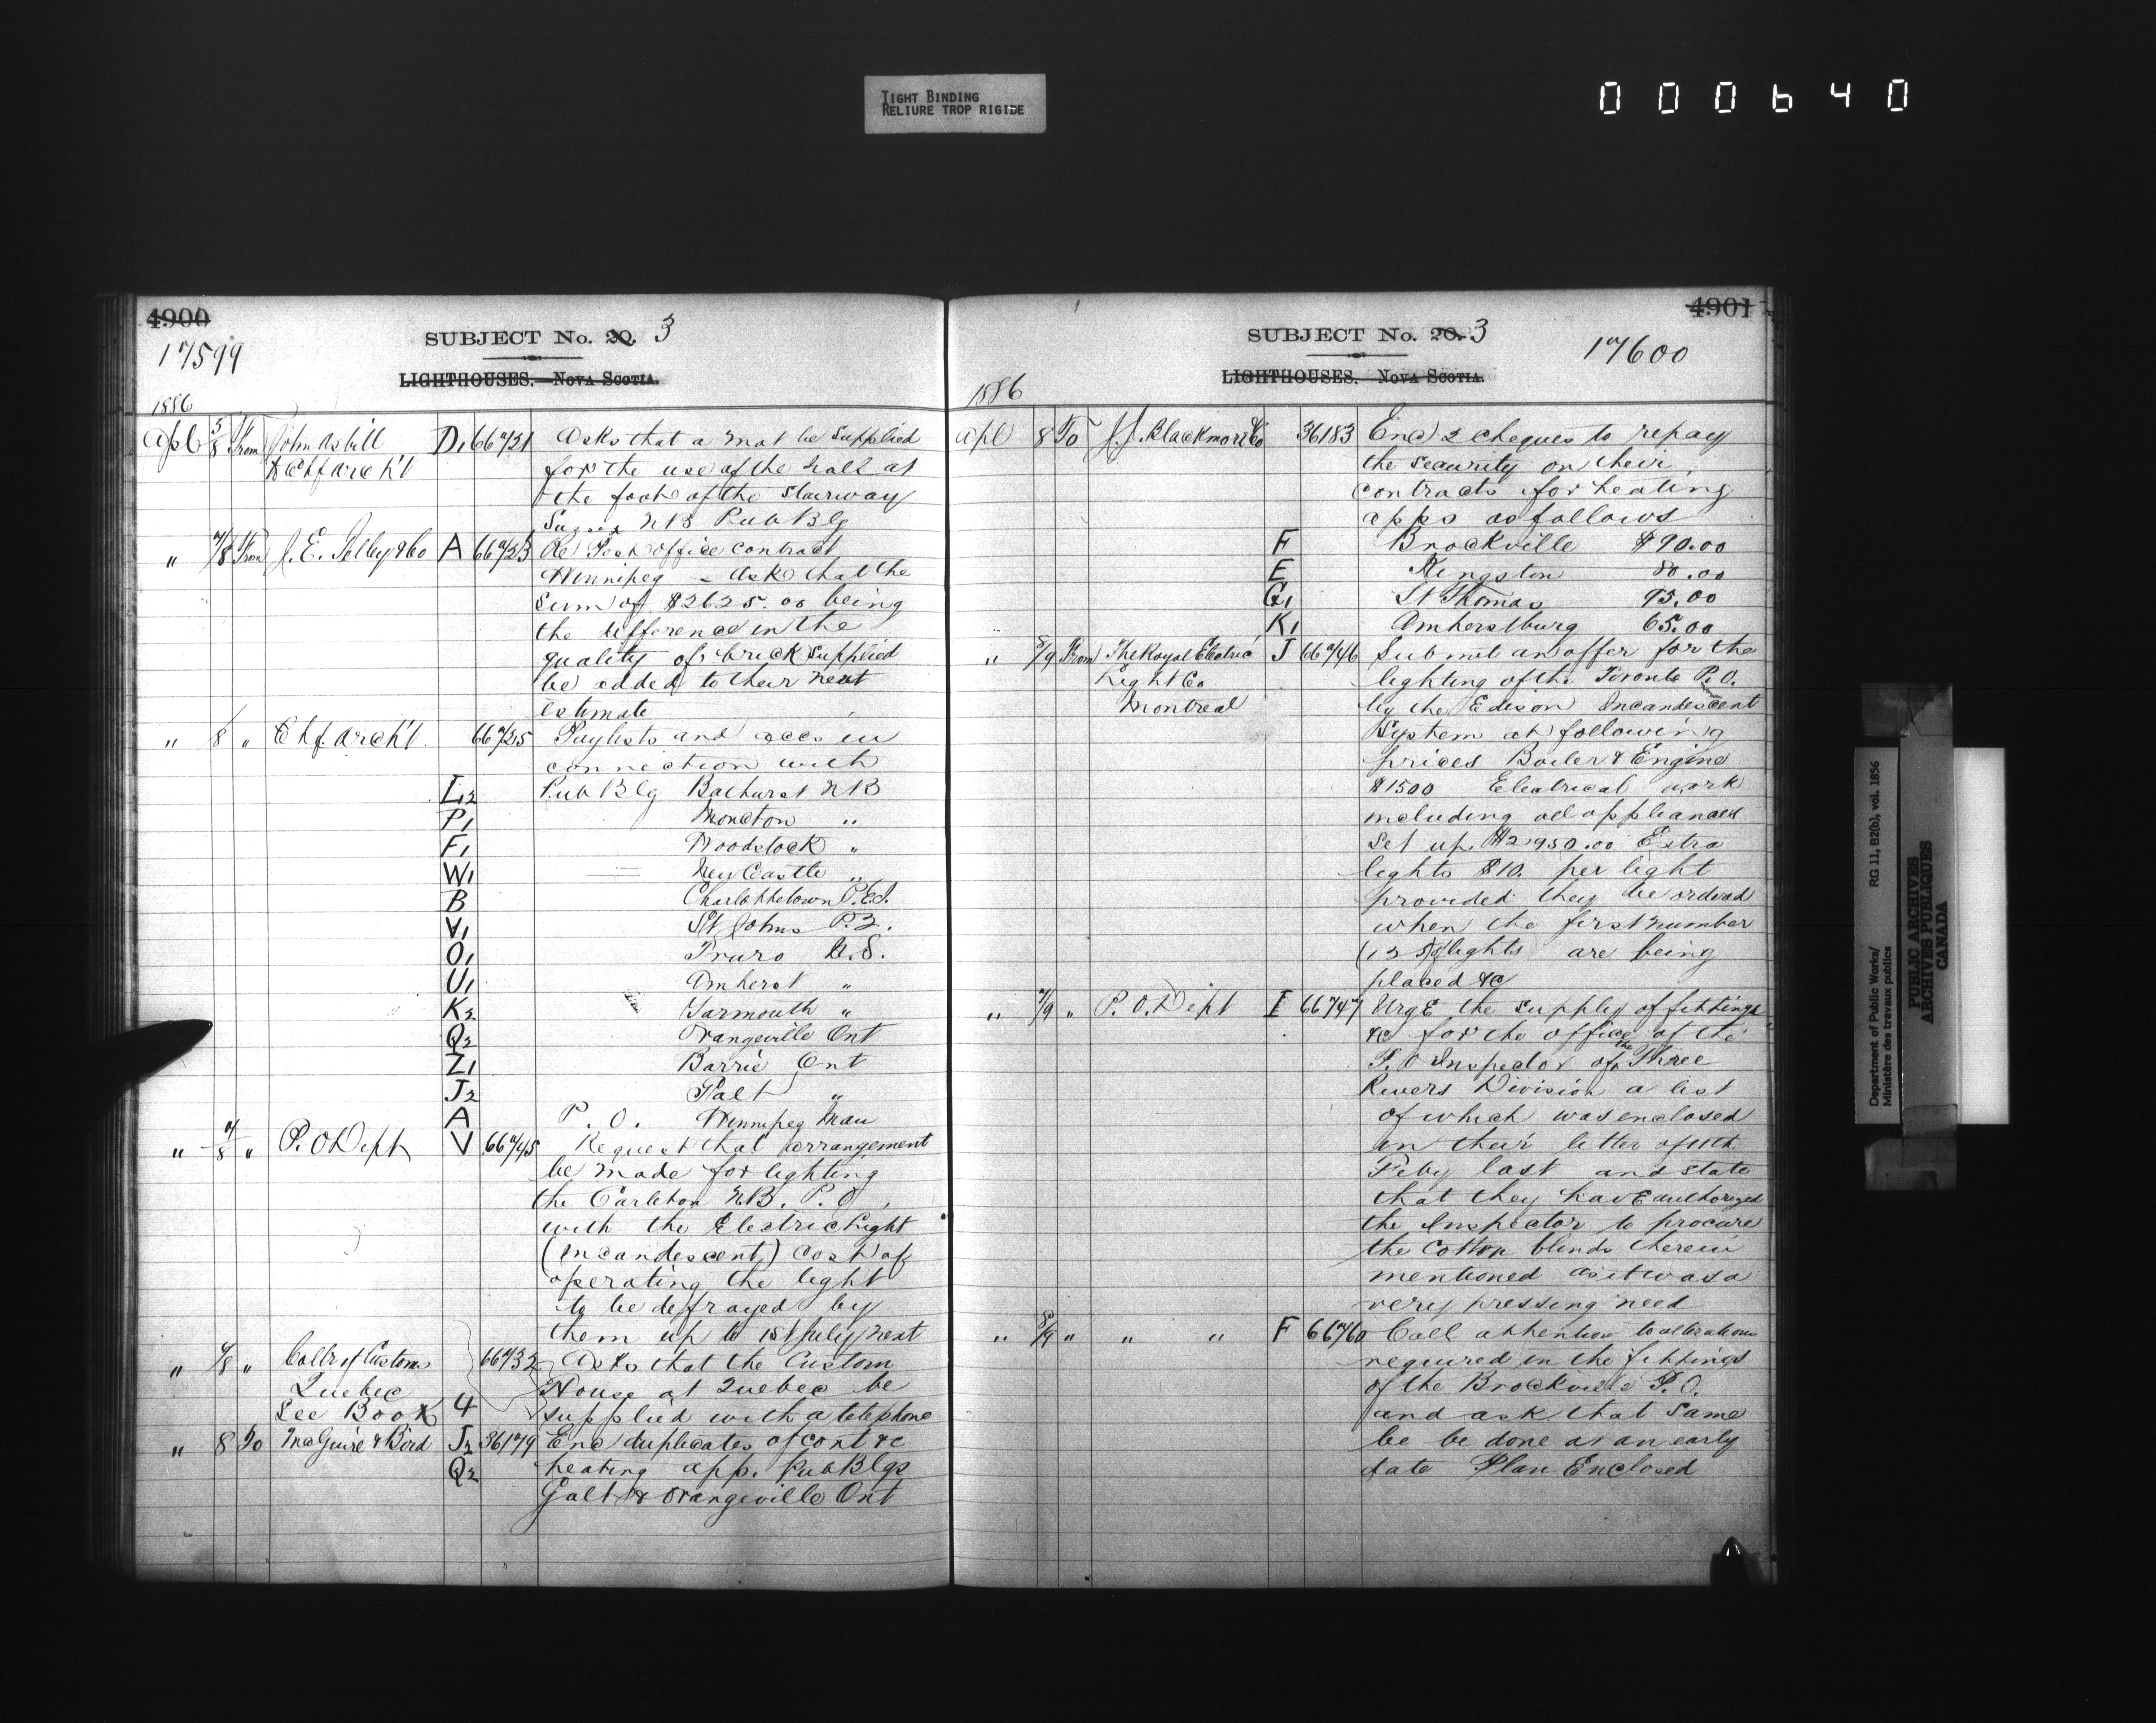 TIGHT BINDING
RELIURE TROP RIGIDE
000640
4900
SUBJECT No. 20. 3
17599
LIGHTHOUSES.—NOVA SCOTIA.
1886
Apl 5/8 From John Asbill D1 66721 Asks that a mat be supplied
Chf Arch't for the use of the hall at
the foot of the stairway
Sussex NB Pub Blg
" 7/8 From J. E. Selby & Co A 66723 Re Post office contract
Winnipeg – Asks that the
sum of $2625.00 being
the difference in the
quality of brick supplied
be added to their next
estimate
" 8 " Chf. Arch't. 66725 Paylists and accs in
connection with
L2 Pub Blg Bathurst NB
P1 Moncton "
F1 Woodstock "
W1 New Castle "
B Charlottetown P.E.I.
V1 St Johns P.Q.
O1 Truro N.S.
U1 Amherst "
K2 Yarmouth "
Q2 Orangeville Ont
Z1 Barrie Ont
J2 Galt "
A P. O. Winnipeg Man
" 7/8 " P. O Dept V 66745 Request that arrangement
be made for lighting
the Carleton N.B. P. O,
with the Electric Light
(incandescent) cost of
operating the light
to be defrayed by
them up to 1st July next
" 7/8 " Collr of Customs 66732 Asks that the Custom
Quebec House at Quebec be
See Book 4 supplied with a telephone
" 8 To McGuire & Bird J2 36179 Enc duplicates of cont &c
Q2 heating app. Pub Blgs
Galt & Orangeville Ont
4901
SUBJECT No. 20. 3
17600
LIGHTHOUSES. NOVA SCOTIA.
1886
Apl 8 To J. J. Blackmore & Co 36183 Enc 2 cheques to repay
the security on their
contracts for heating
apps as follows
F Brockville $90.00
E Kingston 80.00
G1 St Thomas 95.00
K1 Amherstburg 65.00
" 8/9 From The Royal Electric J 66746 Submit an offer for the
Light Co lighting of the Toronto P. O.
Montreal by the Edison Incandescent
System at following
prices Boiler & Engine
$1500 Electrical work
including all appliances
set up $2950.00 Extra
lights $10. per light
provided they be ordered
when the first number
(125) of lights are being
placed &c
" 7/9 " P. O. Dept I 66747 Urge the supply of fittings
&c for the office of the
P. O Inspector of the Three
Rivers Division a list
of which was enclosed
in their letter of 11th
Feby last and state
that they have authorized
the Inspector to procure
the cotton blinds therein
mentioned as it was a
very pressing need
" 8/9 " " " F 66760 Call attention to alterations
required in the fittings
of the Brockville P. O.
and ask that same
be be done at an early
date Plan Enclosed
Department of Public Works/ RG 11, B2(b), vol. 1856
Ministère des travaux publics
PUBLIC ARCHIVES
ARCHIVES PUBLIQUES
CANADA